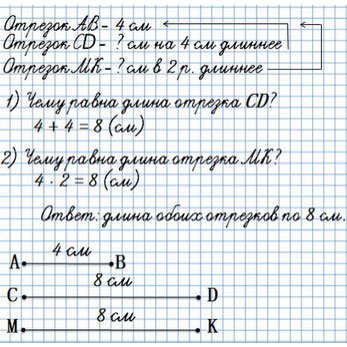 Отрезок AB - 4 см
Отрезок CD - ? см на 4 см длиннее
Отрезок MK - ? см в 2 р. длиннее
1) Чему равна длина отрезка CD?
4 + 4 = 8 (см)
2) Чему равна длина отрезка MK?
4 · 2 = 8 (см)
Ответ: длина обоих отрезков по 8 см.
4 см
A B
8 см
C D
8 см
M K